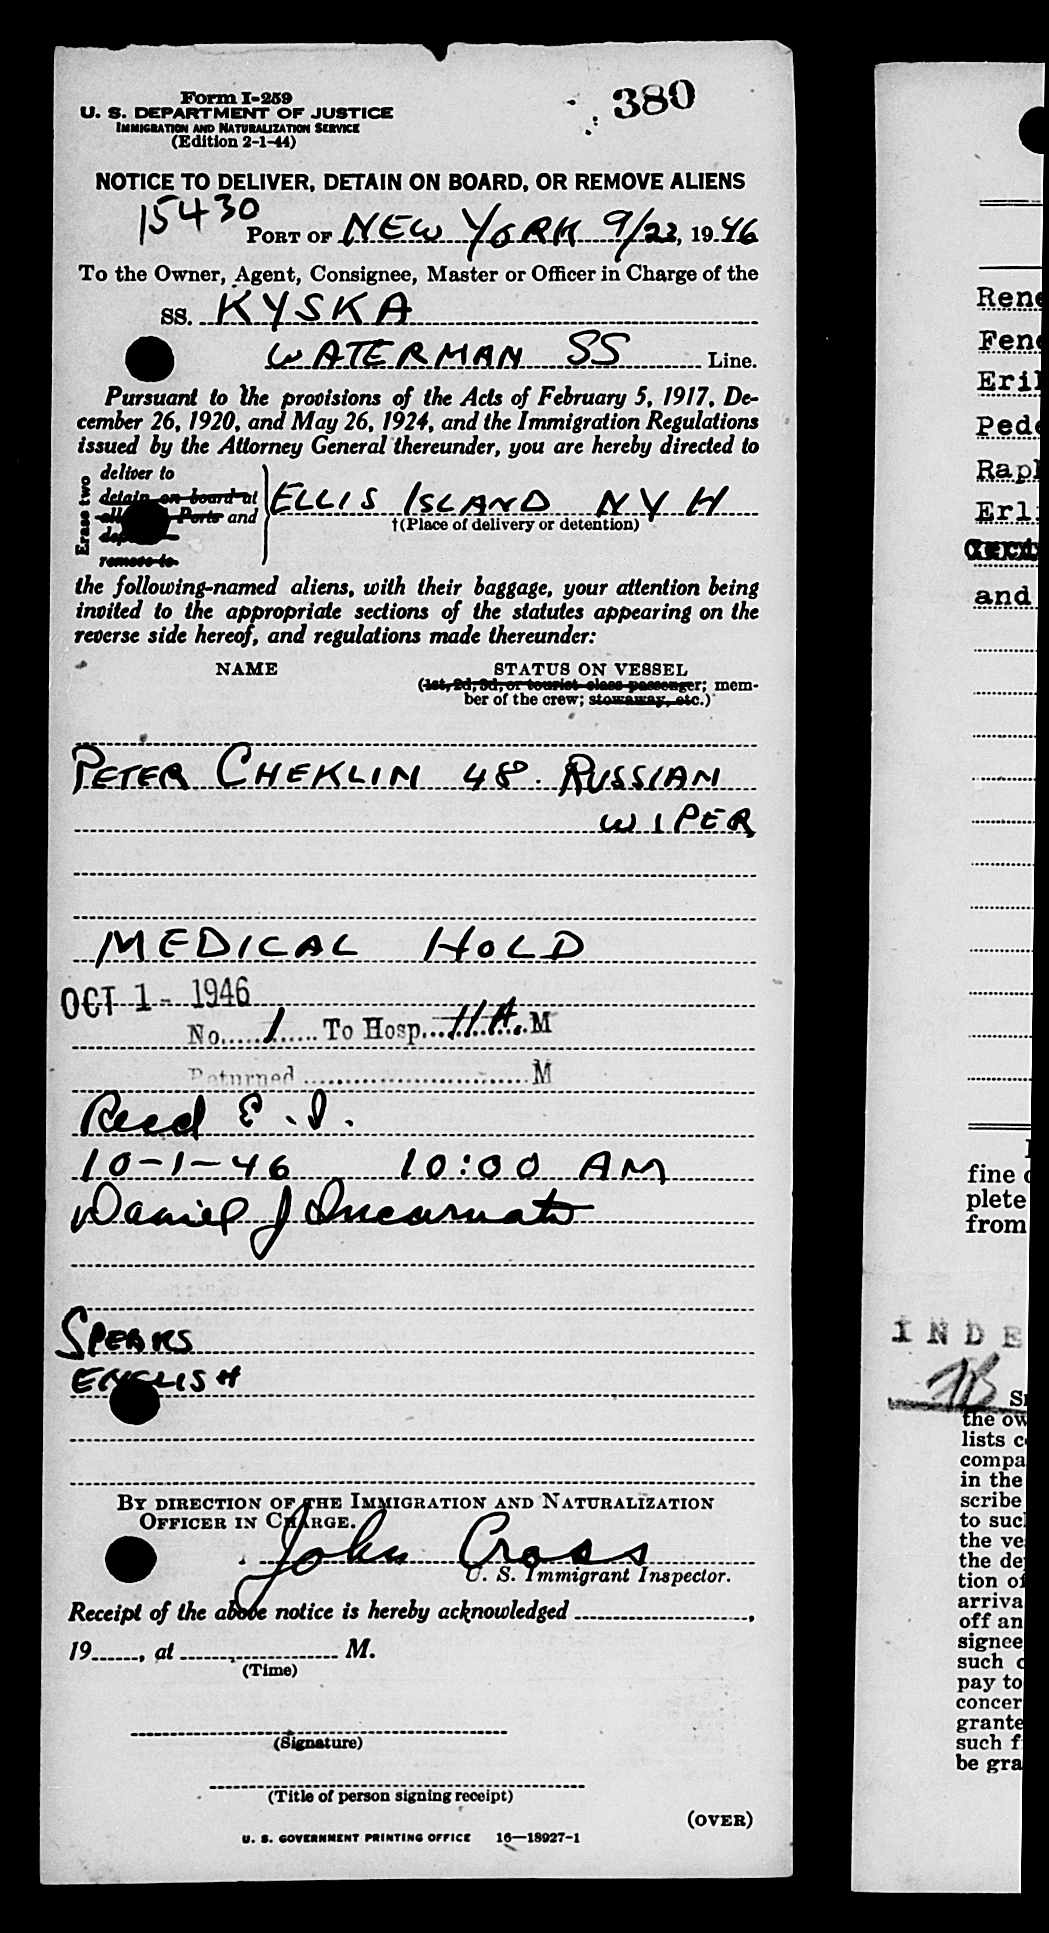 Form I-259
380
U. S. DEPARTMENT OF JUSTICE
IMMIGRATION AND NATURALIZATION SERVICE
(Edition 2-1-44)
NOTICE TO DELIVER, DETAIN ON BOARD, OR REMOVE ALIENS
15430
PORT OF NEW YORK 9/23, 1946
To the Owner, Agent, Consignee, Master or Officer in Charge of the
SS. KYSKA
WATERMAN SS Line.
Pursuant to the provisions of the Acts of February 5, 1917, De-
cember 26, 1920, and May 26, 1924, and the Immigration Regulations
issued by the Attorney General thereunder, you are hereby directed to
Erase two
deliver to
detain on board at
all Ports and
remove to
ELLIS ISLAND NYH
†(Place of delivery or detention)
the following-named aliens, with their baggage, your attention being
invited to the appropriate sections of the statutes appearing on the
reverse side hereof, and regulations made thereunder:
NAME STATUS ON VESSEL
(1st, 2d, 3d, or tourist class passenger; mem-
ber of the crew; stowaway, etc.)
PETER CHEKLIN 48. RUSSIAN
WIPER
MEDICAL HOLD
OCT 1 - 1946
No. 1 To Hosp. 11 A. M
Returned M
Recd E. I.
10-1-46 10:00 AM
Daniel J Incarnato
SPEAKS
ENGLISH
BY DIRECTION OF THE IMMIGRATION AND NATURALIZATION
OFFICER IN CHARGE.
John Cross
U. S. Immigrant Inspector.
Receipt of the above notice is hereby acknowledged ,
19 , at M.
(Time)
(Signature)
(Title of person signing receipt)
(OVER)
U. S. GOVERNMENT PRINTING OFFICE 16—18927-1
Rene
Fen
Eri
Ped
Rap
Erl
and
fine
plete
from
INDE
the ow
lists c
compa
in the
scribe
to suc
the ve
the de
tion of
arriva
off an
signee
such
pay to
concer
grante
such f
be gra